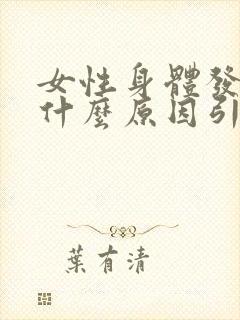 女性身體發
什麼原因引
葉有清